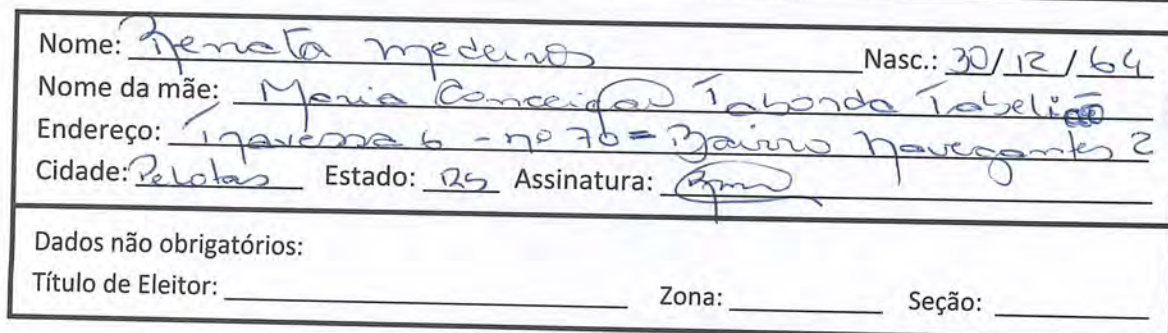 Nome: Renata Medeiros Nasc.: 30/12/64
Nome da mãe: Maria Conceição Taborda
Endereço: Travessa 6 - nº 70 = Bairro Navegantes 2
Cidade: Pelotas Estado: RS Assinatura:
Dados não obrigatórios:
Título de Eleitor: Zona: Seção: